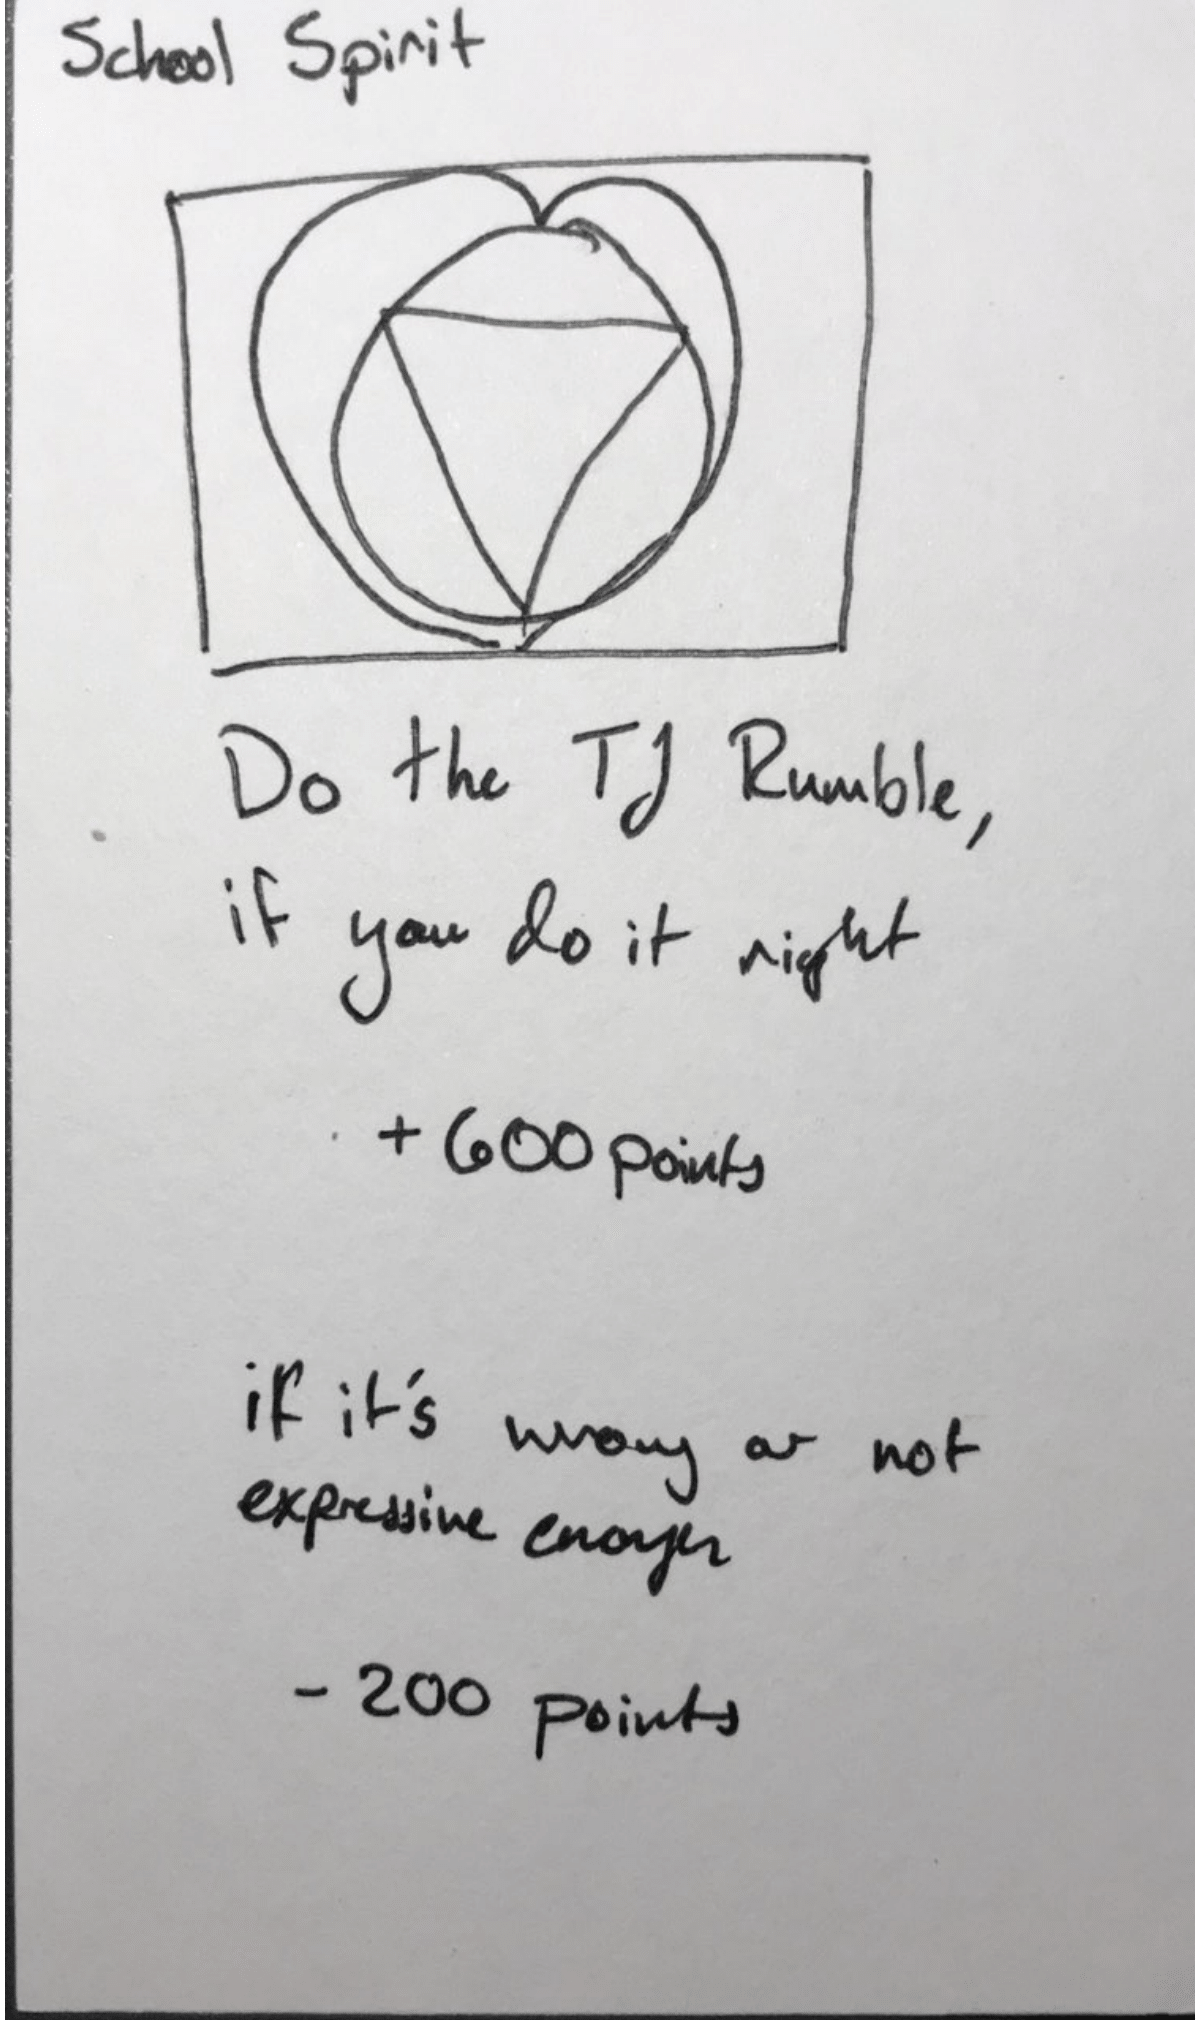 School Spirit
Do the TJ Rumble,
if you do it right
+ 600 points
if it's wrong or not
expressive enough
- 200 points